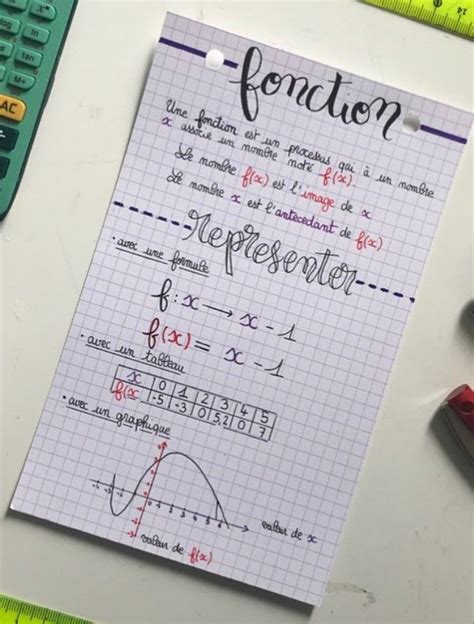 fonction
Une fonction est un processus qui à un nombre
x associe un nombre noté f(x).
Le nombre f(x) est l'image de x
Le nombre x est l'antecedant de f(x)
representer
• avec une formule
f : x → x - 1
f(x) = x - 1
• avec un tableau
x 0 1 2 3 4 5
f(x -5 -3 0 5,2 0 7
• avec un graphique
valeur de x
valeur de f(x)
AC
M+
14